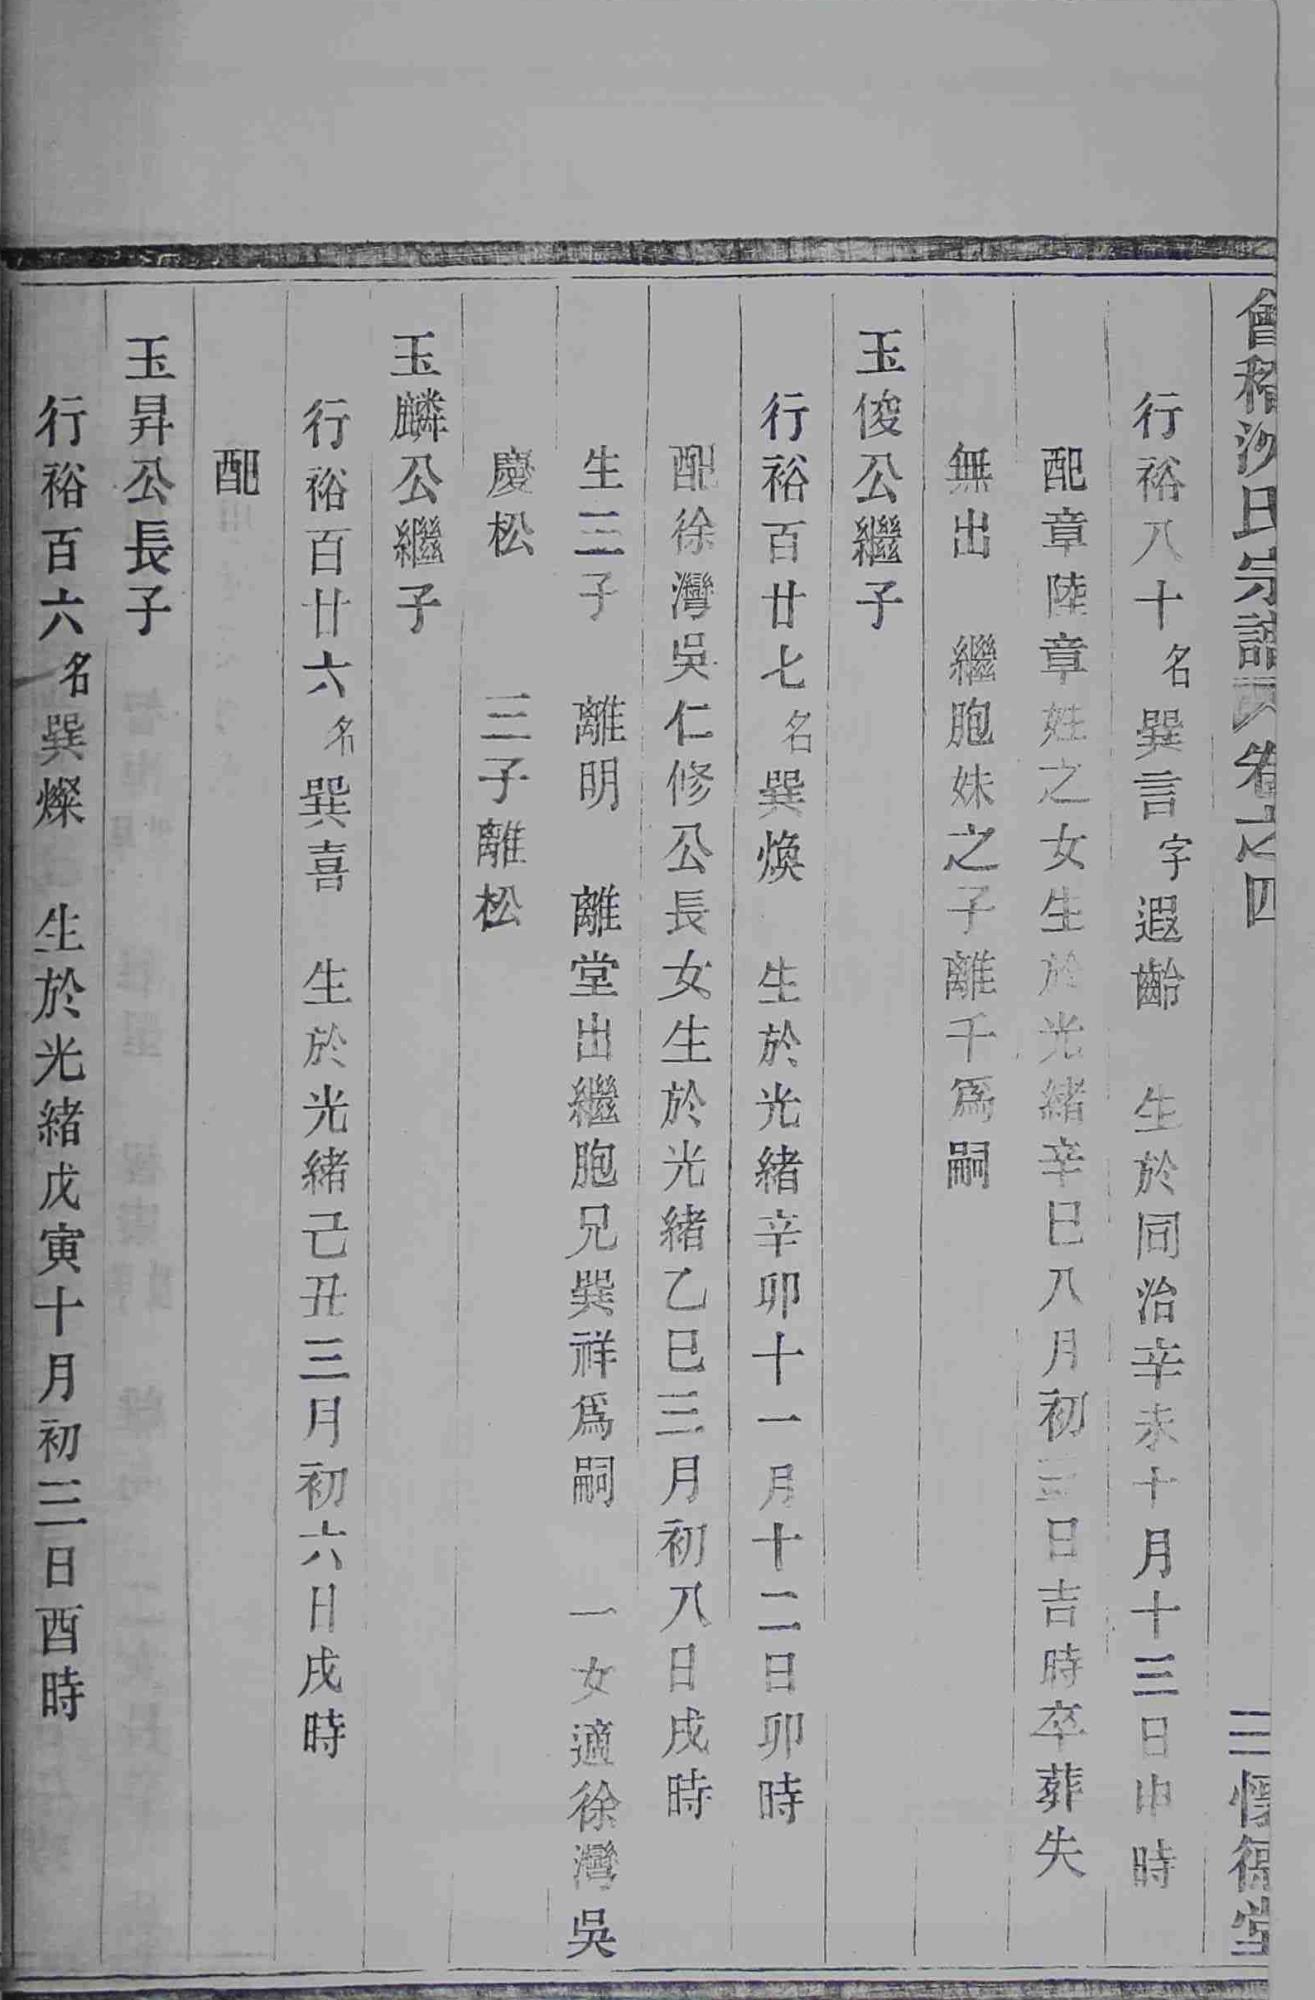 會稽沙氏宗譜 卷之四 三 懷德堂
行裕八十名巽言字遐齡 生於同治辛未十月十三日申時
配章陸章姓之女生於光緒辛巳八月初三日吉時卒葬失
無出 繼胞妹之子離千爲嗣
玉俊公繼子
行裕百廿七名巽煥 生於光緒辛卯十一月十二日卯時
配徐灣吳仁修公長女生於光緒乙巳三月初八日戌時
生三子 離明 離堂出繼胞兄巽祥爲嗣 一女適徐灣吳
慶松 三子離松
玉麟公繼子
行裕百廿六名巽喜 生於光緒己丑三月初六日戌時
配
玉昇公長子
行裕百六名巽燦 生於光緒戊寅十月初三日酉時